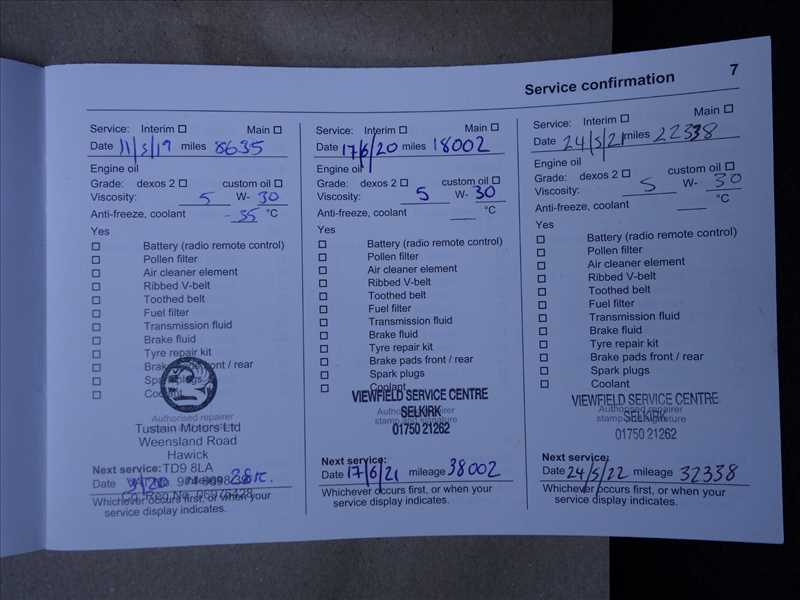 Service confirmation 7
Service: Interim Main
Date 11/5/19 miles 8635
Engine oil
Grade: dexos 2 custom oil
Viscosity: 5 W- 30
Anti-freeze, coolant - 35 °C
Yes
Battery (radio remote control)
Pollen filter
Air cleaner element
Ribbed V-belt
Toothed belt
Fuel filter
Transmission fluid
Brake fluid
Tyre repair kit
Brake pads front / rear
Spark plugs
Coolant
Authorised repairer
Tustain Motors Ltd
Weensland Road
Hawick
Next service: TD9 8LA
Date mileage
Co. Reg No.
Whichever occurs first, or when your
service display indicates.
Service: Interim Main
Date 17/6/20 miles 18002
Engine oil
Grade: dexos 2 custom oil
Viscosity: 5 W- 30
Anti-freeze, coolant °C
Yes
Battery (radio remote control)
Pollen filter
Air cleaner element
Ribbed V-belt
Toothed belt
Fuel filter
Transmission fluid
Brake fluid
Tyre repair kit
Brake pads front / rear
Spark plugs
Coolant
VIEWFIELD SERVICE CENTRE
Authorised repairer
SELKIRK
stamp and signature
01750 21262
Next service:
Date 17/6/21 mileage 38002
Whichever occurs first, or when your
service display indicates.
Service: Interim Main
Date 24/5/21 miles 22338
Engine oil
Grade: dexos 2 custom oil
Viscosity: 5 W- 30
Anti-freeze, coolant °C
Yes
Battery (radio remote control)
Pollen filter
Air cleaner element
Ribbed V-belt
Toothed belt
Fuel filter
Transmission fluid
Brake fluid
Tyre repair kit
Brake pads front / rear
Spark plugs
Coolant
VIEWFIELD SERVICE CENTRE
Authorised repairer
SELKIRK
stamp and signature
01750 21262
Next service:
Date 24/5/22 mileage 32338
Whichever occurs first, or when your
service display indicates.